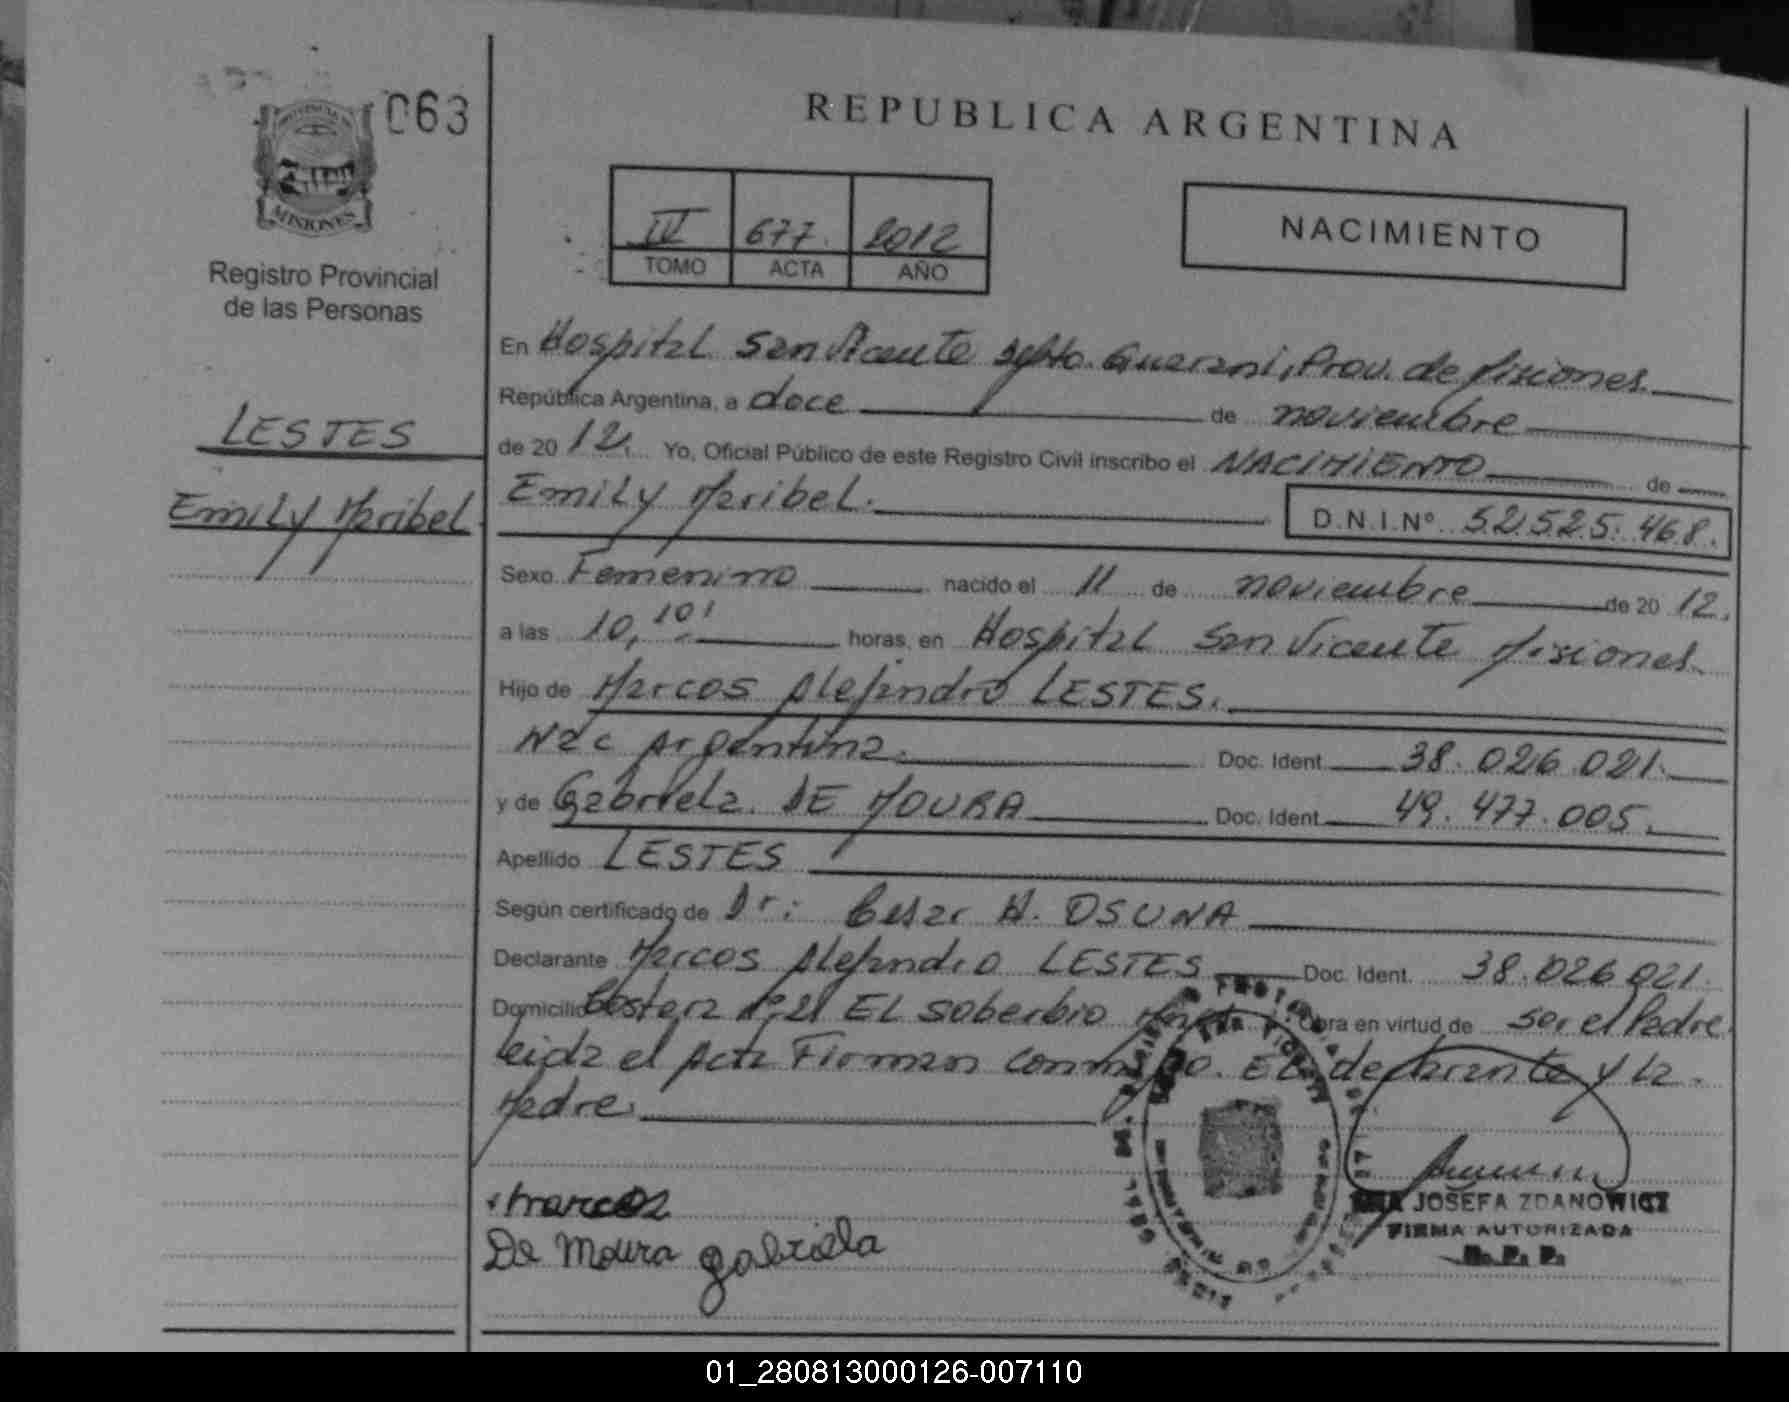 063
MISIONES
Registro Provincial
de las Personas
LESTES
Emily Maribel
REPUBLICA ARGENTINA
IV 677. 2012
TOMO ACTA AÑO
NACIMIENTO
En Hospital San Vicente Dpto. Guarani, Prov. de Misiones.
República Argentina, a doce de noviembre
de 20 12. Yo, Oficial Público de este Registro Civil inscribo el NACIMIENTO de
Emily Maribel. D.N.I.Nº 52.525.468.
Sexo Femenino nacido el 11 de noviembre de 20 12.
a las 10,10' horas, en Hospital San Vicente Misiones.
Hijo de Marcos Alejandro LESTES.
Nac Argentina. Doc. Ident. 38.026.021.
y de Gabriela DE MOURA Doc. Ident. 49.477.005.
Apellido LESTES
Según certificado de Dr: Cesar H. OSUNA
Declarante Marcos Alejandro LESTES Doc. Ident. 38.026.021.
Domicilio Costera EL Soberbio Obra en virtud de ser el Padre.
Leida el Acta Firman conmigo. EL declarante y La
Madre.
Marcos
De Moura gabriela
JOSEFA ZDANOWICZ
FIRMA AUTORIZADA
R. P. P.
01_280813000126-007110